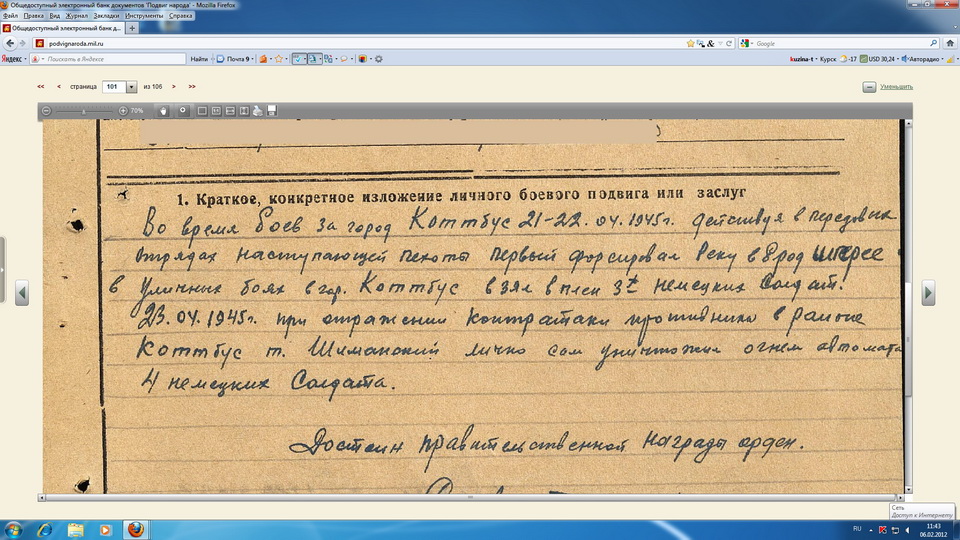 Общедоступный электронный банк документов 'Подвиг народа' - Mozilla Firefox
Файл Правка Вид Журнал Закладки Инструменты Справка
Общедоступный электронный банк д...
podvignaroda.mil.ru
Google
Яндекс Поискать в Яндексе Найти Почта 9 kuzina-t Курск -17 USD 30,24 Авторадио
<< < страница 101 из 106 > >> Уменьшить
70%
1. Краткое, конкретное изложение личного боевого подвига или заслуг
Во время боев за город Коттбус 21-22.04.1945г. действуя в передовых
отрядах наступающей пехоты первый форсировал Реку в брод шпрее
в уличных боях в гор. Коттбус взял в плен 3х немецких Солдат.
23.04.1945г. при отражении контратаки противника в районе
Коттбус т. Шиманский лично сам уничтожил огнем автомата
4 немецких Солдата.
Достоин правительственной награды орден.
Сеть
Доступ к Интернету
RU 11:43
06.02.2012